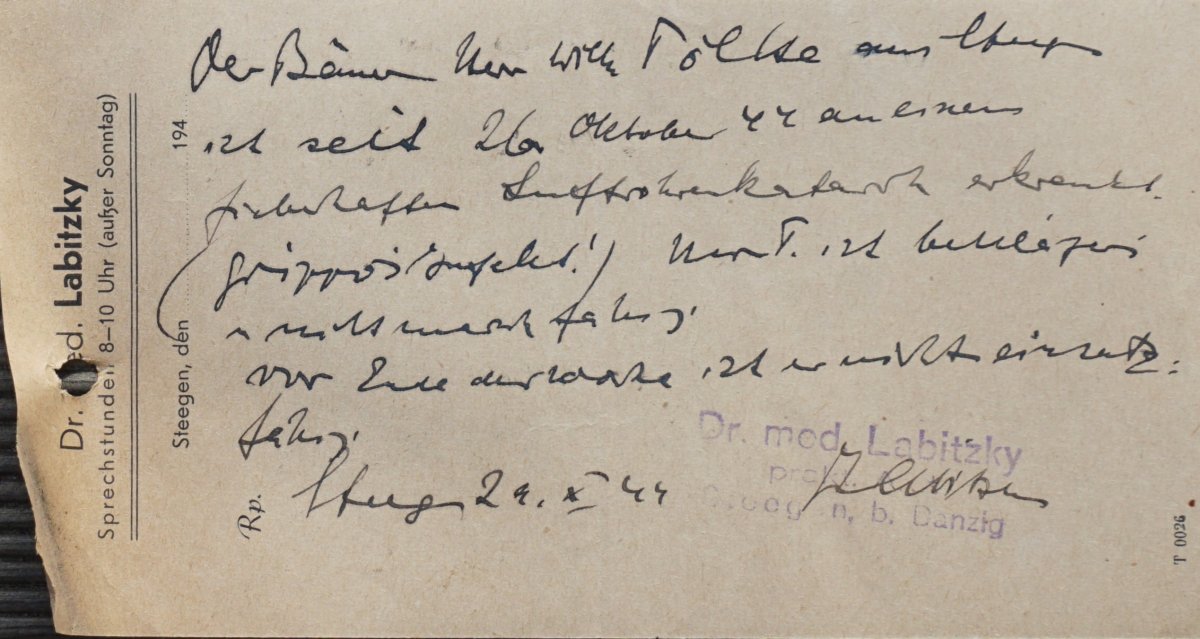 Dr. med. Labitzky
Sprechstunden 8–10 Uhr (außer Sonntag)
Steegen, den 194
Der Herr Willi aus
ist seit 26. Oktober 44 an einem
fieberhaften Luftröhrenkatarrh erkrankt.
(grippös Infekt!) Herr T. ist bettlägerig
u nicht marschfähig.
vor Ende der Woche ist er nicht einsatz-
fähig.
Rp. 29. X 44
Dr. med. Labitzky
prakt.
Steegen, b. Danzig
T 0026